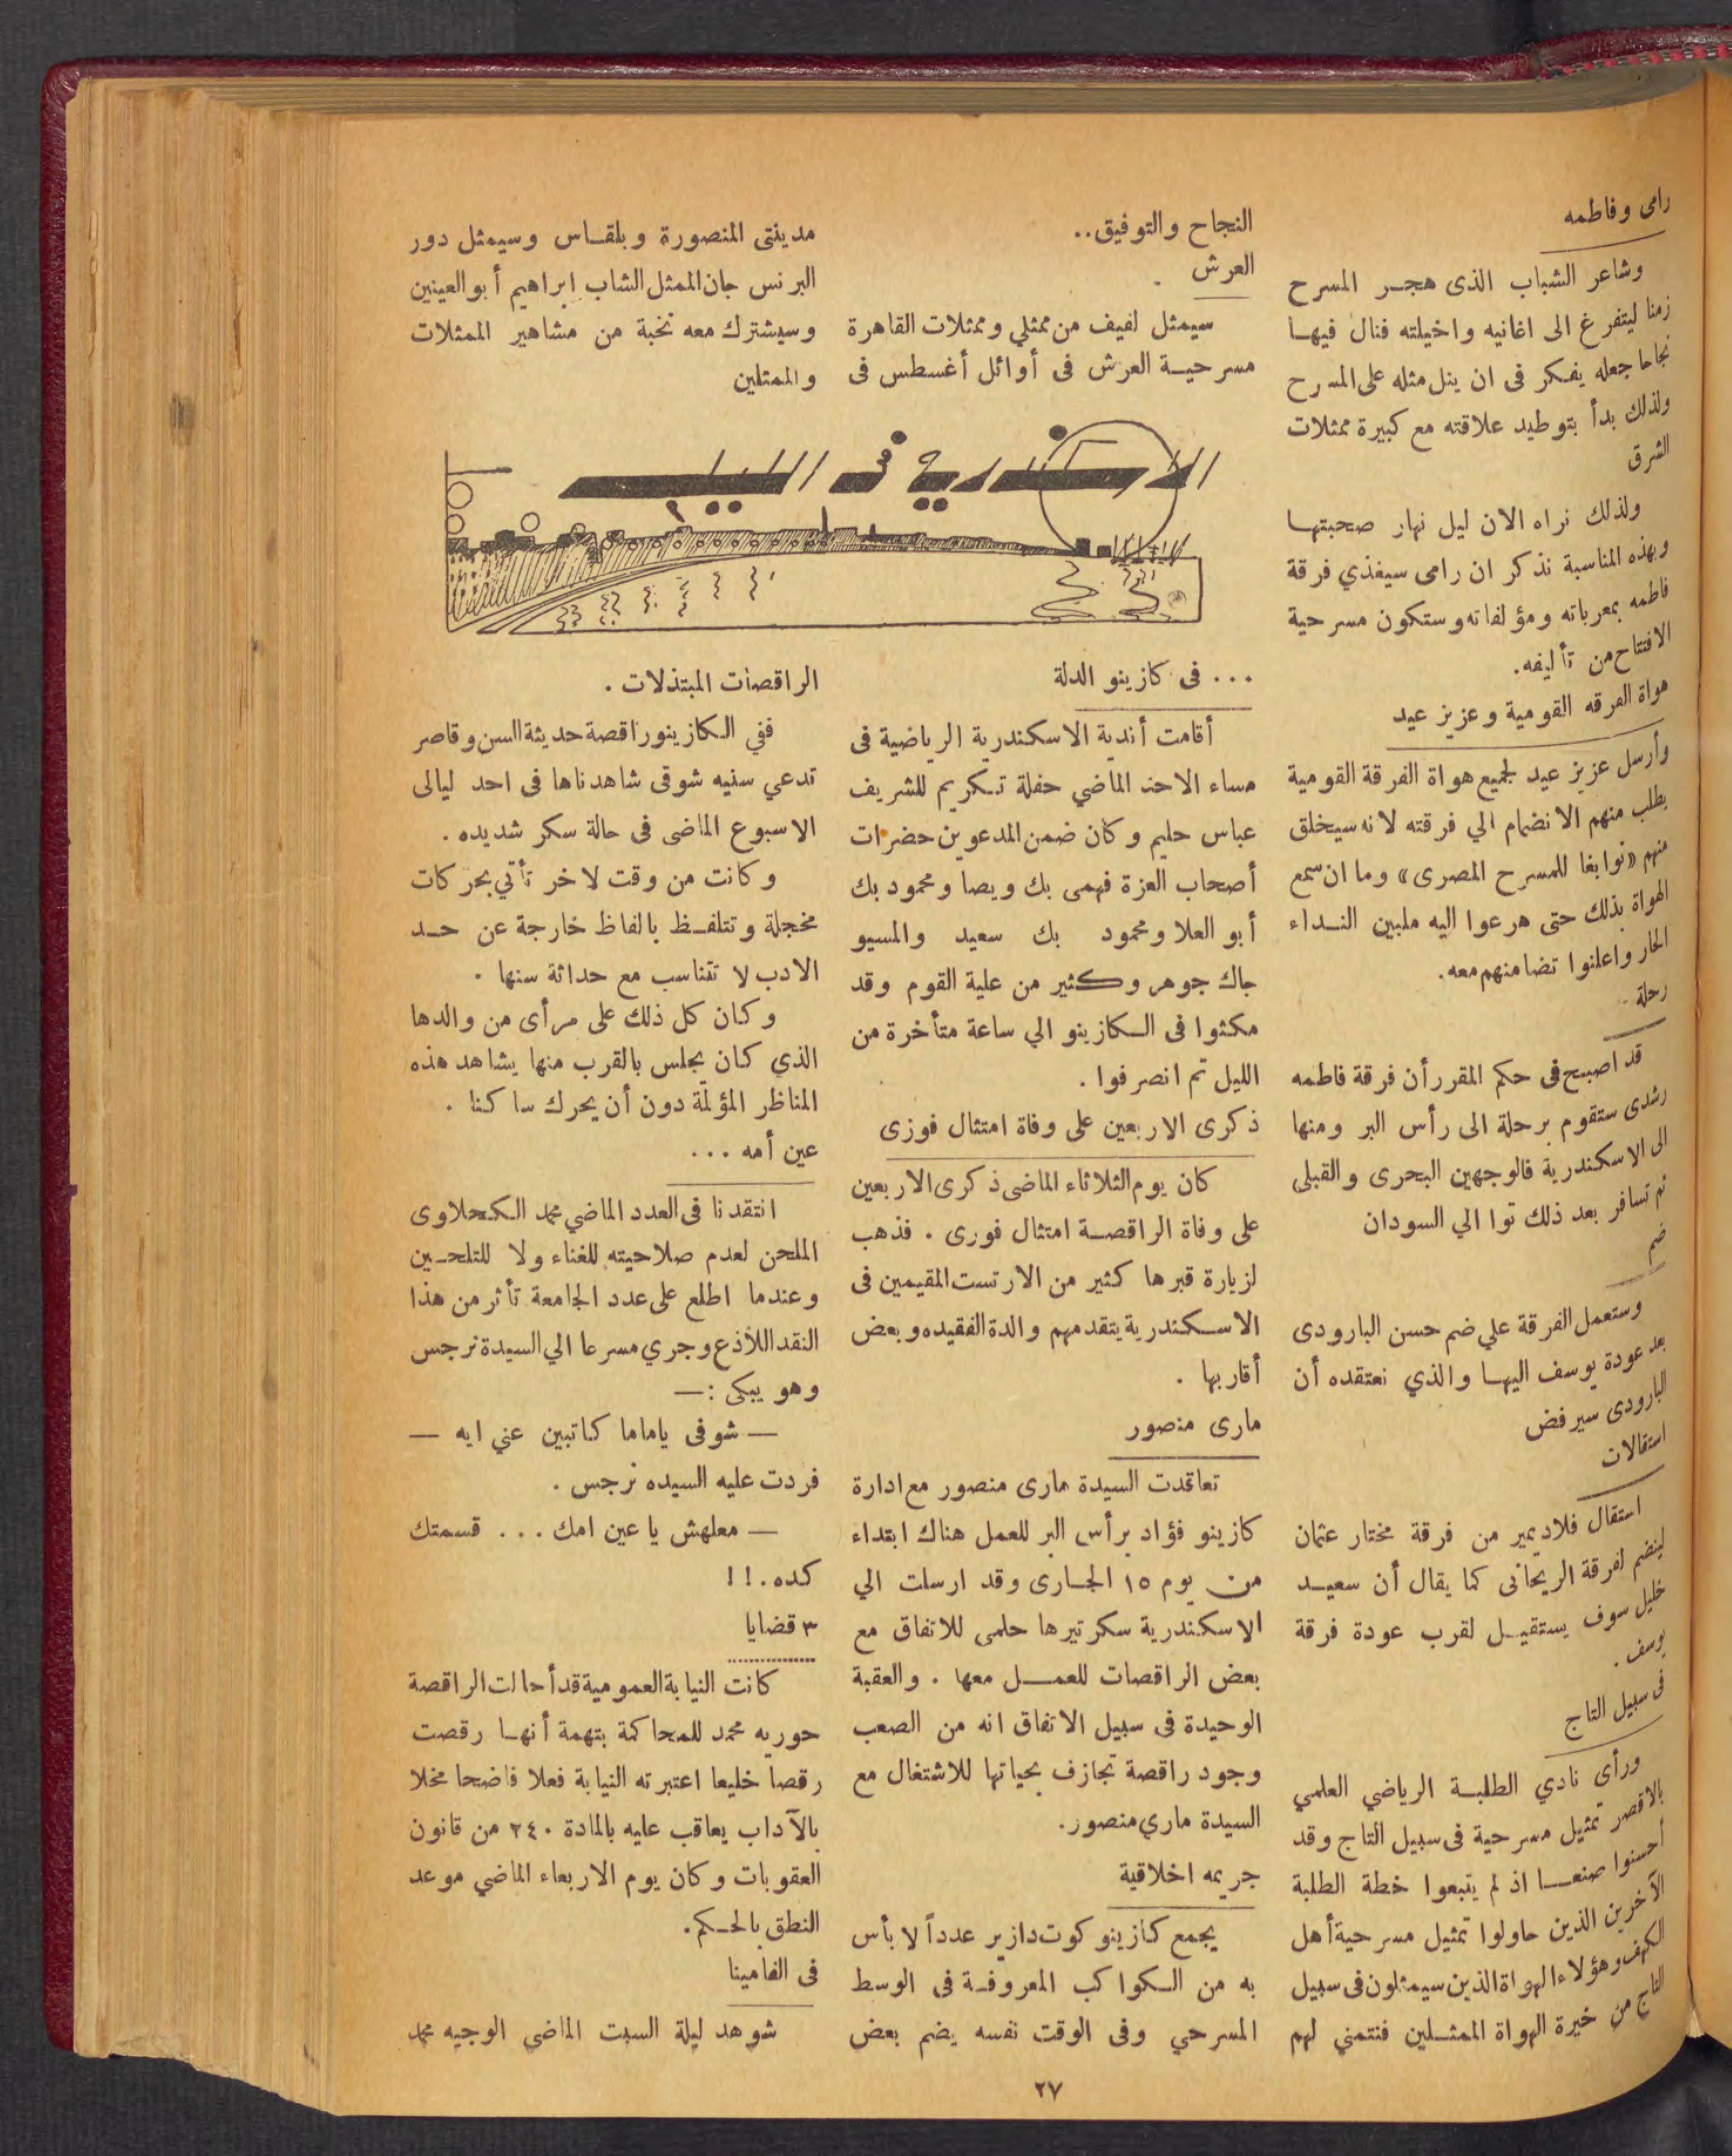 رامى وفاطمه
وشاعر الشباب الذى هجر المسرح
زمنا ليتفرغ الى اغانيه واخيلته فنال فيها
نجاحا جعله يفكر فى ان ينل مثله على المسرح
ولذلك بدأ بتوطيد علاقته مع كبيرة ممثلات
الشرق
ولذلك نراه الان ليل نهار صحبتها
وبهذه المناسبة نذكر ان رامى سيغذي فرقة
فاطمه بمعرباته ومؤلفاته وستكون مسرحية
الافتتاح من تأليفه.
هواة الفرقه القومية وعزيز عيد
وأرسل عزيز عيد لجميع هواة الفرقة القومية
يطلب منهم الانضمام الي فرقته لانه سيخلق
منهم «نوابغا للمسرح المصرى» وما ان سمع
الهواة بذلك حتى هرعوا اليه ملبين النداء
الحار واعلنوا تضامنهم معه.
رحلة
قد اصبح فى حكم المقرر أن فرقة فاطمه
رشدى ستقوم برحلة الى رأس البر ومنها
الى الاسكندرية فالوجهين البحرى والقبلى
ثم تسافر بعد ذلك توا الي السودان
ضم
وستعمل الفرقة علي ضم حسن البارودى
بعد عودة يوسف اليها والذي نعتقده أن
البارودى سيرفض
استقالات
استقال فلاديمير من فرقة مختار عثمان
لينضم لفرقة الريحانى كما يقال أن سعيد
خليل سوف يستقيل لقرب عودة فرقة
يوسف .
فى سبيل التاج
ورأى نادي الطلبة الرياضي العلمي
بالاقصر تمثيل مسرحية فى سبيل التاج وقد
أحسنوا صنعا اذ لم يتبعوا خطة الطلبة
الآخرين الذين حاولوا تمثيل مسرحية أهل
الكهف وهؤلاء الهواة الذين سيمثلون فى سبيل
التاج من خيرة الهواة الممثلين فنتمني لهم
النجاح والتوفيق..
العرش
سيمثل لفيف من ممثلي وممثلات القاهرة
مسرحية العرش فى أوائل أغسطس فى
مدينتى المنصورة وبلقاس وسيمثل دور
البرنس جان الممثل الشاب ابراهيم أبو العينين
وسيشترك معه نخبة من مشاهير الممثلات
والممثلين
الاسكندرية فى الليل
... فى كازينو الدلة
أقامت أندية الاسكندرية الرياضية فى
مساء الاحد الماضي حفلة تكريم للشريف
عباس حليم وكان ضمن المدعوين حضرات
أصحاب العزة فهمى بك ويصا ومحمود بك
أبو العلا ومحمود بك سعيد والمسيو
جاك جوهر وكثير من علية القوم وقد
مكثوا فى الكازينو الي ساعة متأخرة من
الليل ثم انصرفوا .
ذكرى الاربعين على وفاة امتثال فوزى
كان يوم الثلاثاء الماضى ذكرى الاربعين
على وفاة الراقصة امتثال فوزى . فذهب
لزيارة قبرها كثير من الارتست المقيمين فى
الاسكندرية يتقدمهم والدة الفقيده وبعض
أقاربها .
مارى منصور
تعاقدت السيدة مارى منصور مع ادارة
كازينو فؤاد برأس البر للعمل هناك ابتداء
من يوم ١٥ الجارى وقد ارسلت الي
الاسكندرية سكرتيرها حلمى للاتفاق مع
بعض الراقصات للعمل معها . والعقبة
الوحيدة فى سبيل الاتفاق انه من الصعب
وجود راقصة تجازف بحياتها للاشتغال مع
السيدة ماري منصور.
جريمه اخلاقية
يجمع كازينو كوت دازير عدداً لا بأس
به من الكواكب المعروفة فى الوسط
المسرحي وفى الوقت نفسه يضم بعض
الراقصات المبتذلات .
ففي الكازينو راقصة حديثة السن وقاصر
تدعي سنيه شوقى شاهدناها فى احد ليالى
الاسبوع الماضى فى حالة سكر شديده .
وكانت من وقت لاخر تأتي بحركات
مخجلة وتتلفظ بالفاظ خارجة عن حد
الادب لا تتناسب مع حداثة سنها .
وكان كل ذلك على مرأى من والدها
الذي كان يجلس بالقرب منها يشاهد هذه
المناظر المؤلمة دون أن يحرك ساكنا .
عين أمه ...
انتقدنا فى العدد الماضي محمد الكحلاوى
الملحن لعدم صلاحيته للغناء ولا للتلحين
وعندما اطلع على عدد الجامعة تأثر من هذا
النقد اللاذع وجري مسرعا الي السيدة نرجس
وهو يبكى :—
— شوفى ياماما كاتبين عني ايه —
فردت عليه السيده نرجس .
— معلهش يا عين امك ... قسمتك
كده.!!
٣ قضايا
كانت النيابة العمومية قد أحالت الراقصة
حوريه محمد للمحاكمة بتهمة أنها رقصت
رقصا خليعا اعتبرته النيابة فعلا فاضحا مخلا
بالآداب يعاقب عليه بالمادة ٢٤٠ من قانون
العقوبات وكان يوم الاربعاء الماضي موعد
النطق بالحكم.
فى الفامينا
شوهد ليلة السبت الماضي الوجيه محمد
٢٧